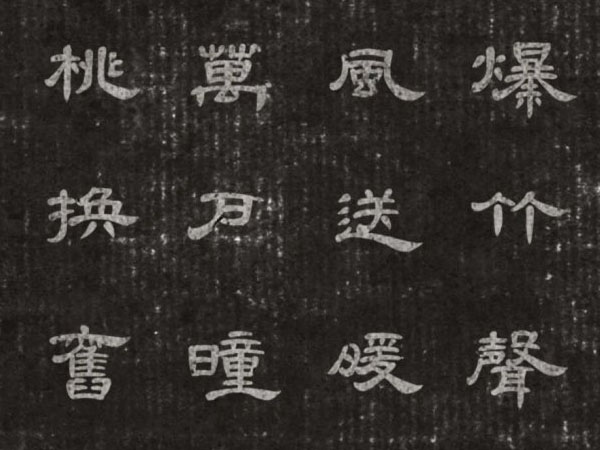 爆竹聲
風送暖
萬戶曈
桃换舊